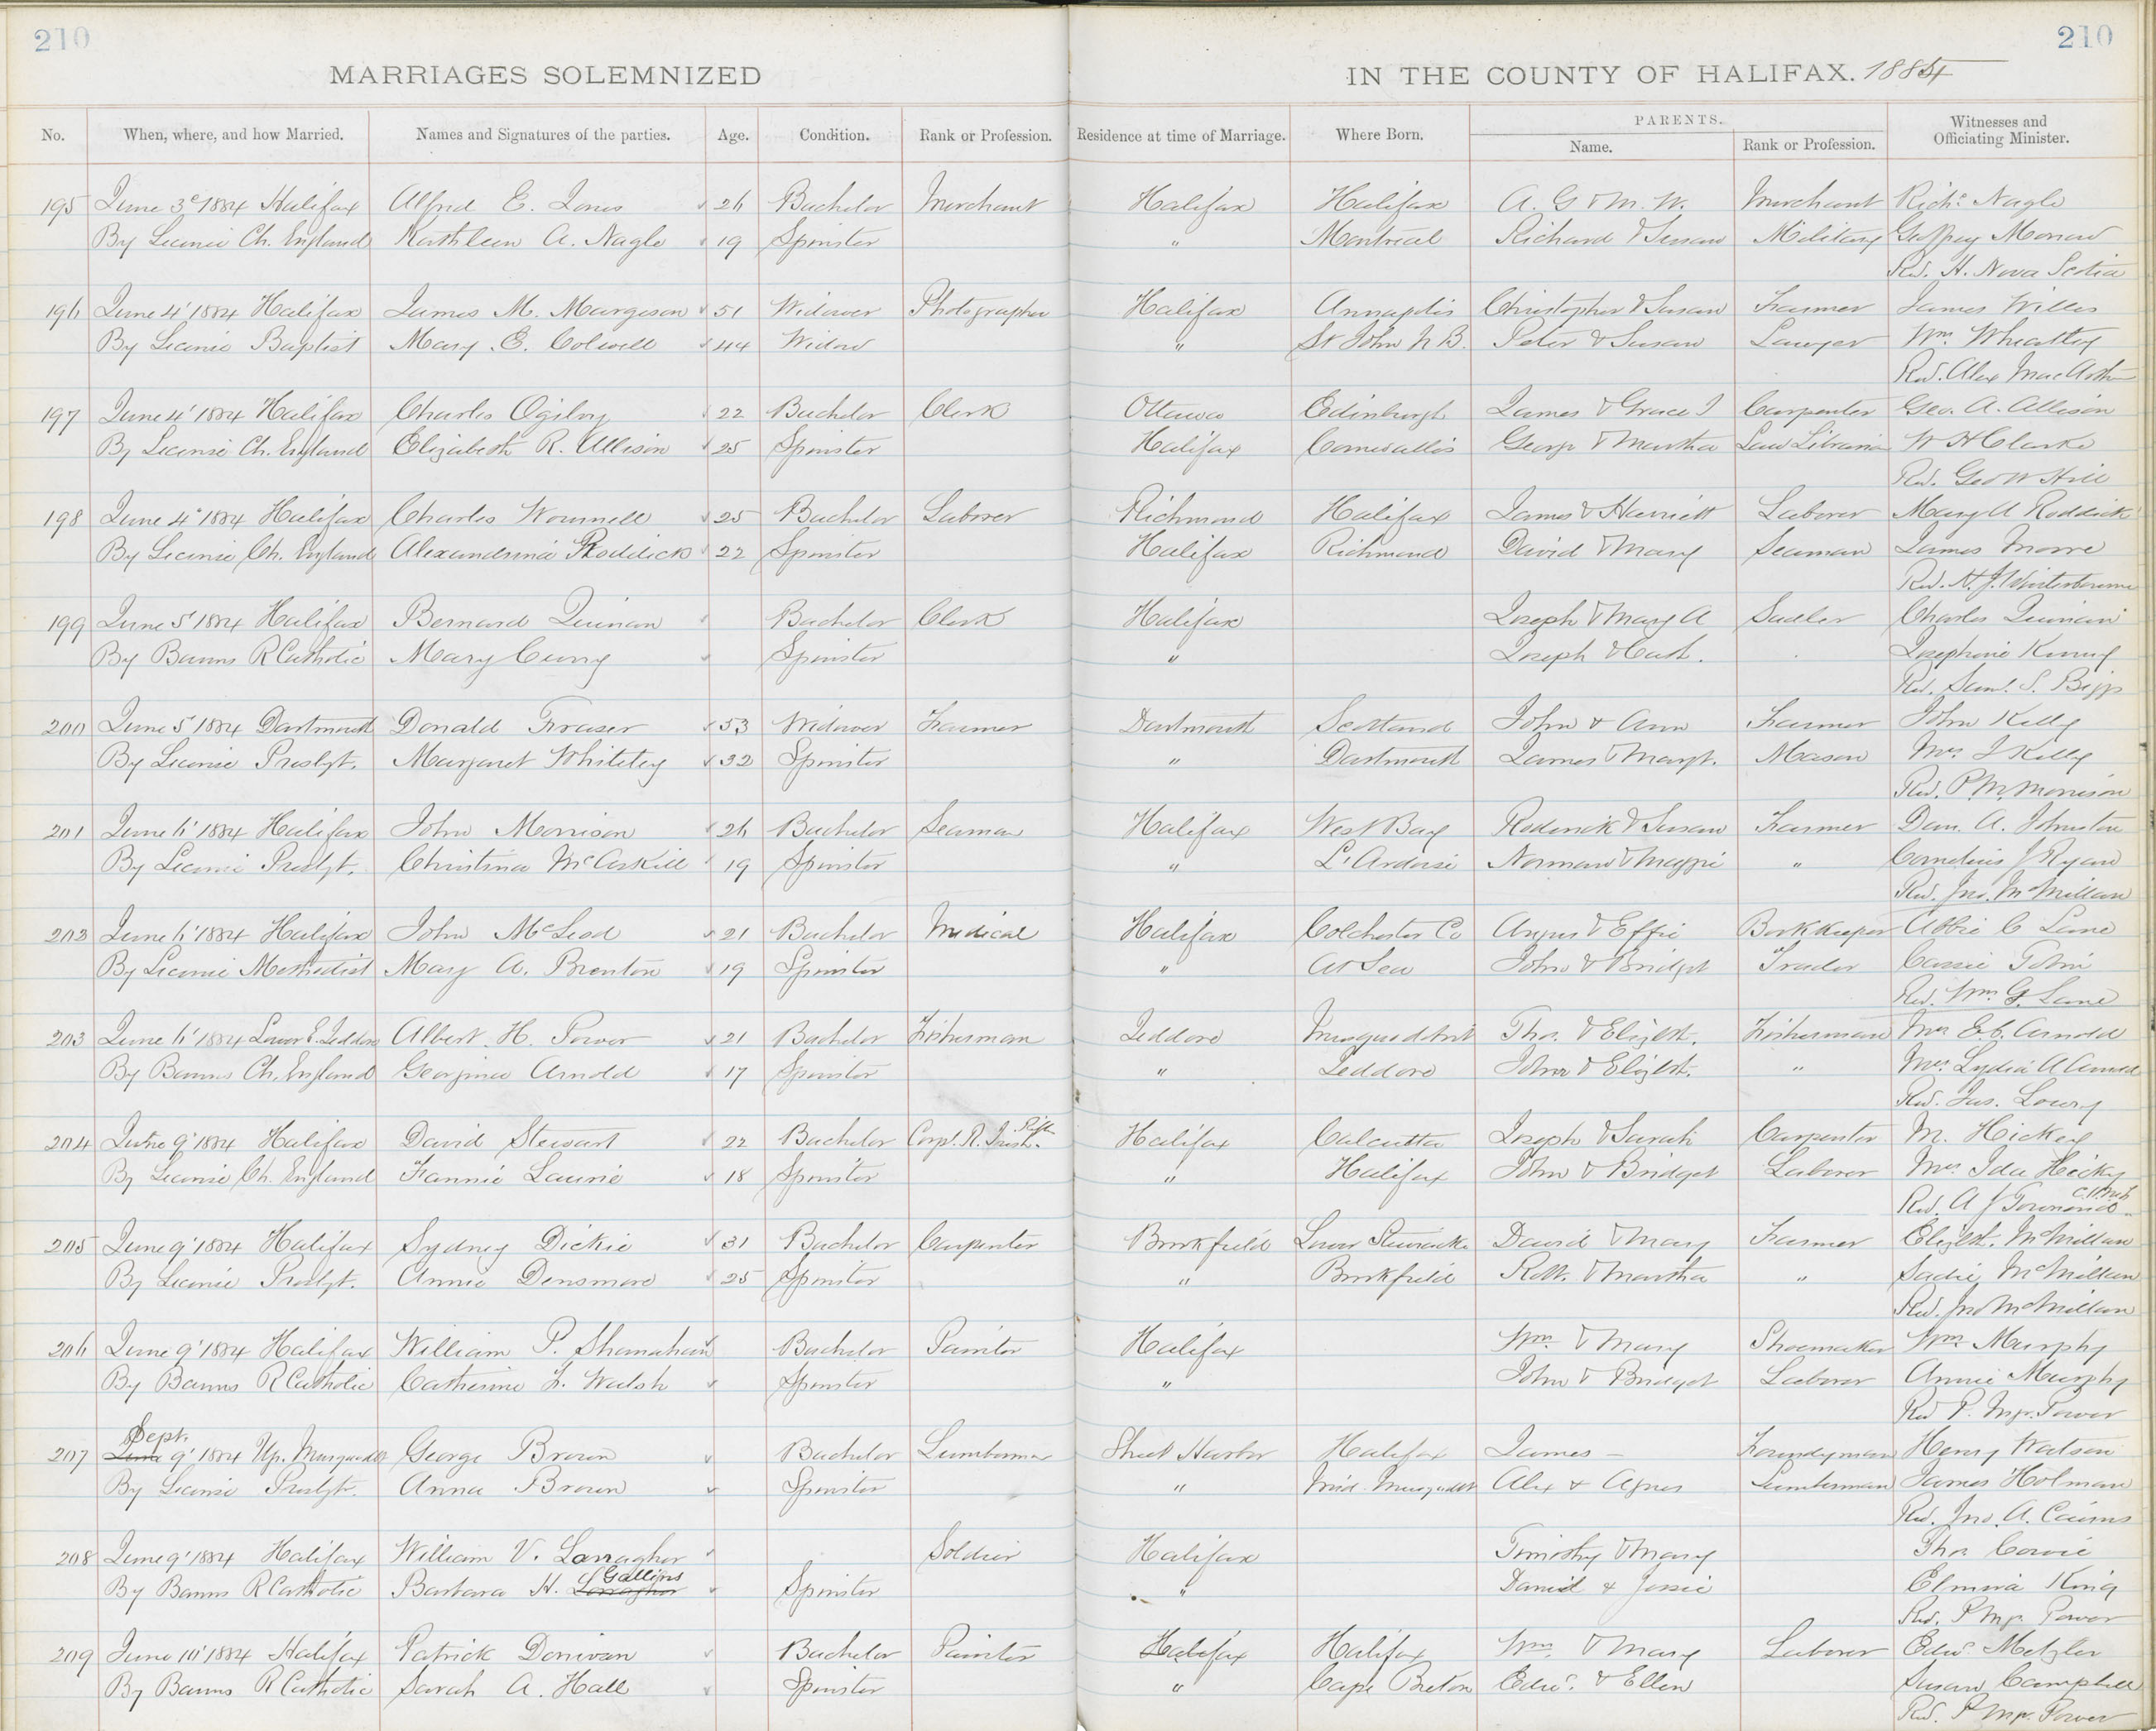 210 210
MARRIAGES SOLEMNIZED IN THE COUNTY OF HALIFAX. 1884
PARENTS.
No. When, where, and how Married. Names and Signatures of the parties. Age. Condition. Rank or Profession. Residence at time of Marriage. Where Born. Name. Rank or Profession. Witnesses and Officiating Minister.
195 June 3d 1884 Halifax Alfred E. Jones 26 Bachelor Merchant Halifax Halifax A. G & M. W. Merchant Richd Nagle
By Licence Ch. England Kathleen A. Nagle 19 Spinster " Montreal Richard & Susan Military Geoffrey Morrow
Rev. H. Nova Scotia
196 June 4' 1884 Halifax James M. Margeson 51 Widower Photographer Halifax Annapolis Christopher & Susan Farmer James Willis
By Licence Baptist Mary E. Colwell 44 Widow " St John N B. Peter & Susan Lawyer Wm Wheatley
Rev. Alex MacArthur
197 June 4' 1884 Halifax Charles Ogilvy 22 Bachelor Clerk Ottawa Edinburgh James & Grace J Carpenter Geo. A. Allison
By Licence Ch. England Elizabeth R. Allison 25 Spinster Halifax Cornwallis George & Martha Law Librarian W H Clarke
Rev. Geo W Hill
198 June 4' 1884 Halifax Charles Wournell 25 Bachelor Laborer Richmond Halifax James & Harriett Laborer Mary A Roddick
By Licence Ch. England Alexandrina Roddick 22 Spinster Halifax Richmond David & Mary Seaman James Moore
Rev. H. J. Winterbourne
199 June 5' 1884 Halifax Bernard Quinan Bachelor Clerk Halifax Joseph & Mary A Sadler Charles Quinan
By Banns R Catholic Mary Curry Spinster " Joseph & Cath. Josephine Kenny
Rev. Saml. S. Biggs
200 June 5' 1884 Dartmouth Donald Fraser 53 Widower Farmer Dartmouth Scotland John & Ann Farmer John Kelly
By Licence Presbyt. Margaret Whiteley 32 Spinster " Dartmouth James & Margt. Mason Mrs J Kelly
Rev. P. M. Morrison
201 June 6' 1884 Halifax John Morrison 26 Bachelor Seaman Halifax West Bay Roderick & Susan Farmer Dan. A. Johnston
By Licence Presbyt. Christina McAskill 19 Spinster " L'Ardoise Norman & Maggie " Cornelius J Ryan
Rev. Jno. McMillan
202 June 6' 1884 Halifax John McLeod 21 Bachelor Medical Halifax Colchester Co Angus & Effie Bookkeeper Abbie C Lane
By Licence Methodist Mary A. Brenton 19 Spinster " At Sea John & Bridget Trader Cassie Tobin
Rev. Wm. G. Lane
203 June 6' 1884 Lower E. Jeddore Albert H. Power 21 Bachelor Fisherman Jeddore Musquodoboit Thos. & Elizbt. Fisherman Mrs E. C. Arnold
By Banns Ch. England Georgina Arnold 17 Spinster " Jeddore John & Elizbt. " Mrs. Lydia A Arnold
Rev. Jas. Lowry
204 June 9' 1884 Halifax David Stewart 22 Bachelor Corpl. R. Irish Rifl. Halifax Calcutta Joseph & Sarah Carpenter M. Hickey
By Licence Ch. England Fannie Laurie 18 Spinster " Halifax John & Bridget Laborer Mrs Ida Hickey
Rev. A J Townend
205 June 9' 1884 Halifax Sydney Dickie 31 Bachelor Carpenter Brookfield Lower Stewiacke David & Mary Farmer Elizbt. McMillan
By Licence Presbyt. Annie Densmore 25 Spinster " Brookfield Robt. & Martha " Sadie McMillan
Rev. Jno McMillan
206 June 9' 1884 Halifax William P. Shanahan Bachelor Painter Halifax Wm. & Mary Shoemaker Wm Murphy
By Banns R Catholic Catherine F. Walsh Spinster " John & Bridget Laborer Annie Murphy
Rev P. Mgr. Power
Sept.
207 June 9' 1884 Up. Musquodbt George Brown Bachelor Lumberman Sheet Harbor Halifax James – Foundryman Henry Watson
By Licence Presbyt. Anna Brown Spinster " Mid. Musquodbt Alex & Agnes Lumberman James Holman
Rev. Jno. A. Cairns
208 June 9' 1884 Halifax William V. Lanagher Soldier Halifax Timothy & Mary Thos. Cowie
By Banns R Catholic Barbara H. Lonagher Gallipis Spinster " Daniel & Jessie Elmira King
Rev. P Mgr. Power
209 June 10' 1884 Halifax Patrick Donivan Bachelor Painter Halifax Halifax Wm. & Mary Laborer Edwd Metzler
By Banns R Catholic Sarah A. Hall Spinster " Cape Breton Edwd. & Ellen Susan Campbell
Rev. P Mgr. Power